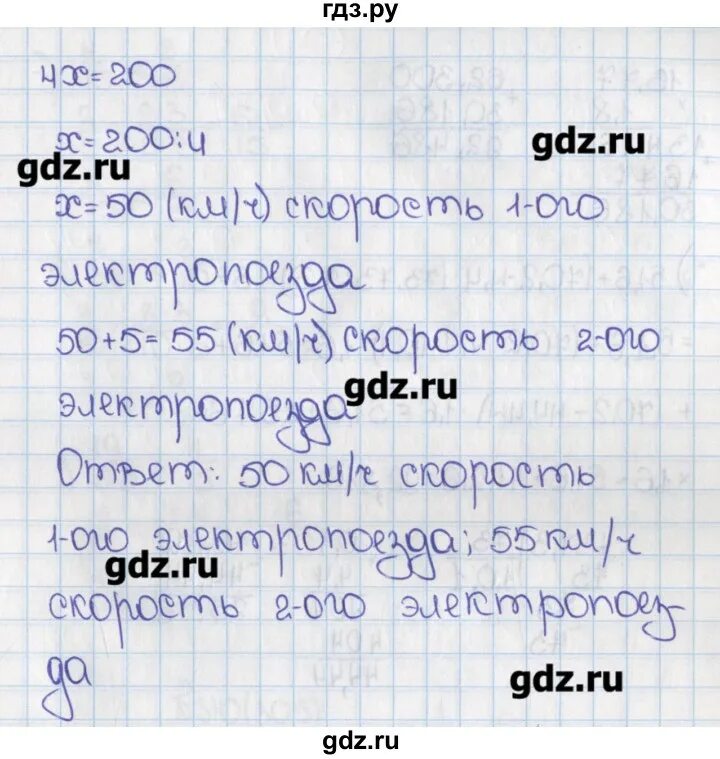 гдз.ру
4x=200
x=200:4
gdz.ru
gdz.ru
x=50 (км/ч) скорость 1-ого
электропоезда
50+5=55 (км/ч) скорость 2-ого
gdz.ru
электропоезда
Ответ: 50 км/ч скорость
1-ого электропоезда; 55 км/ч
gdz.ru
скорость 2-ого электропоез-
да
gdz.ru
gdz.ru